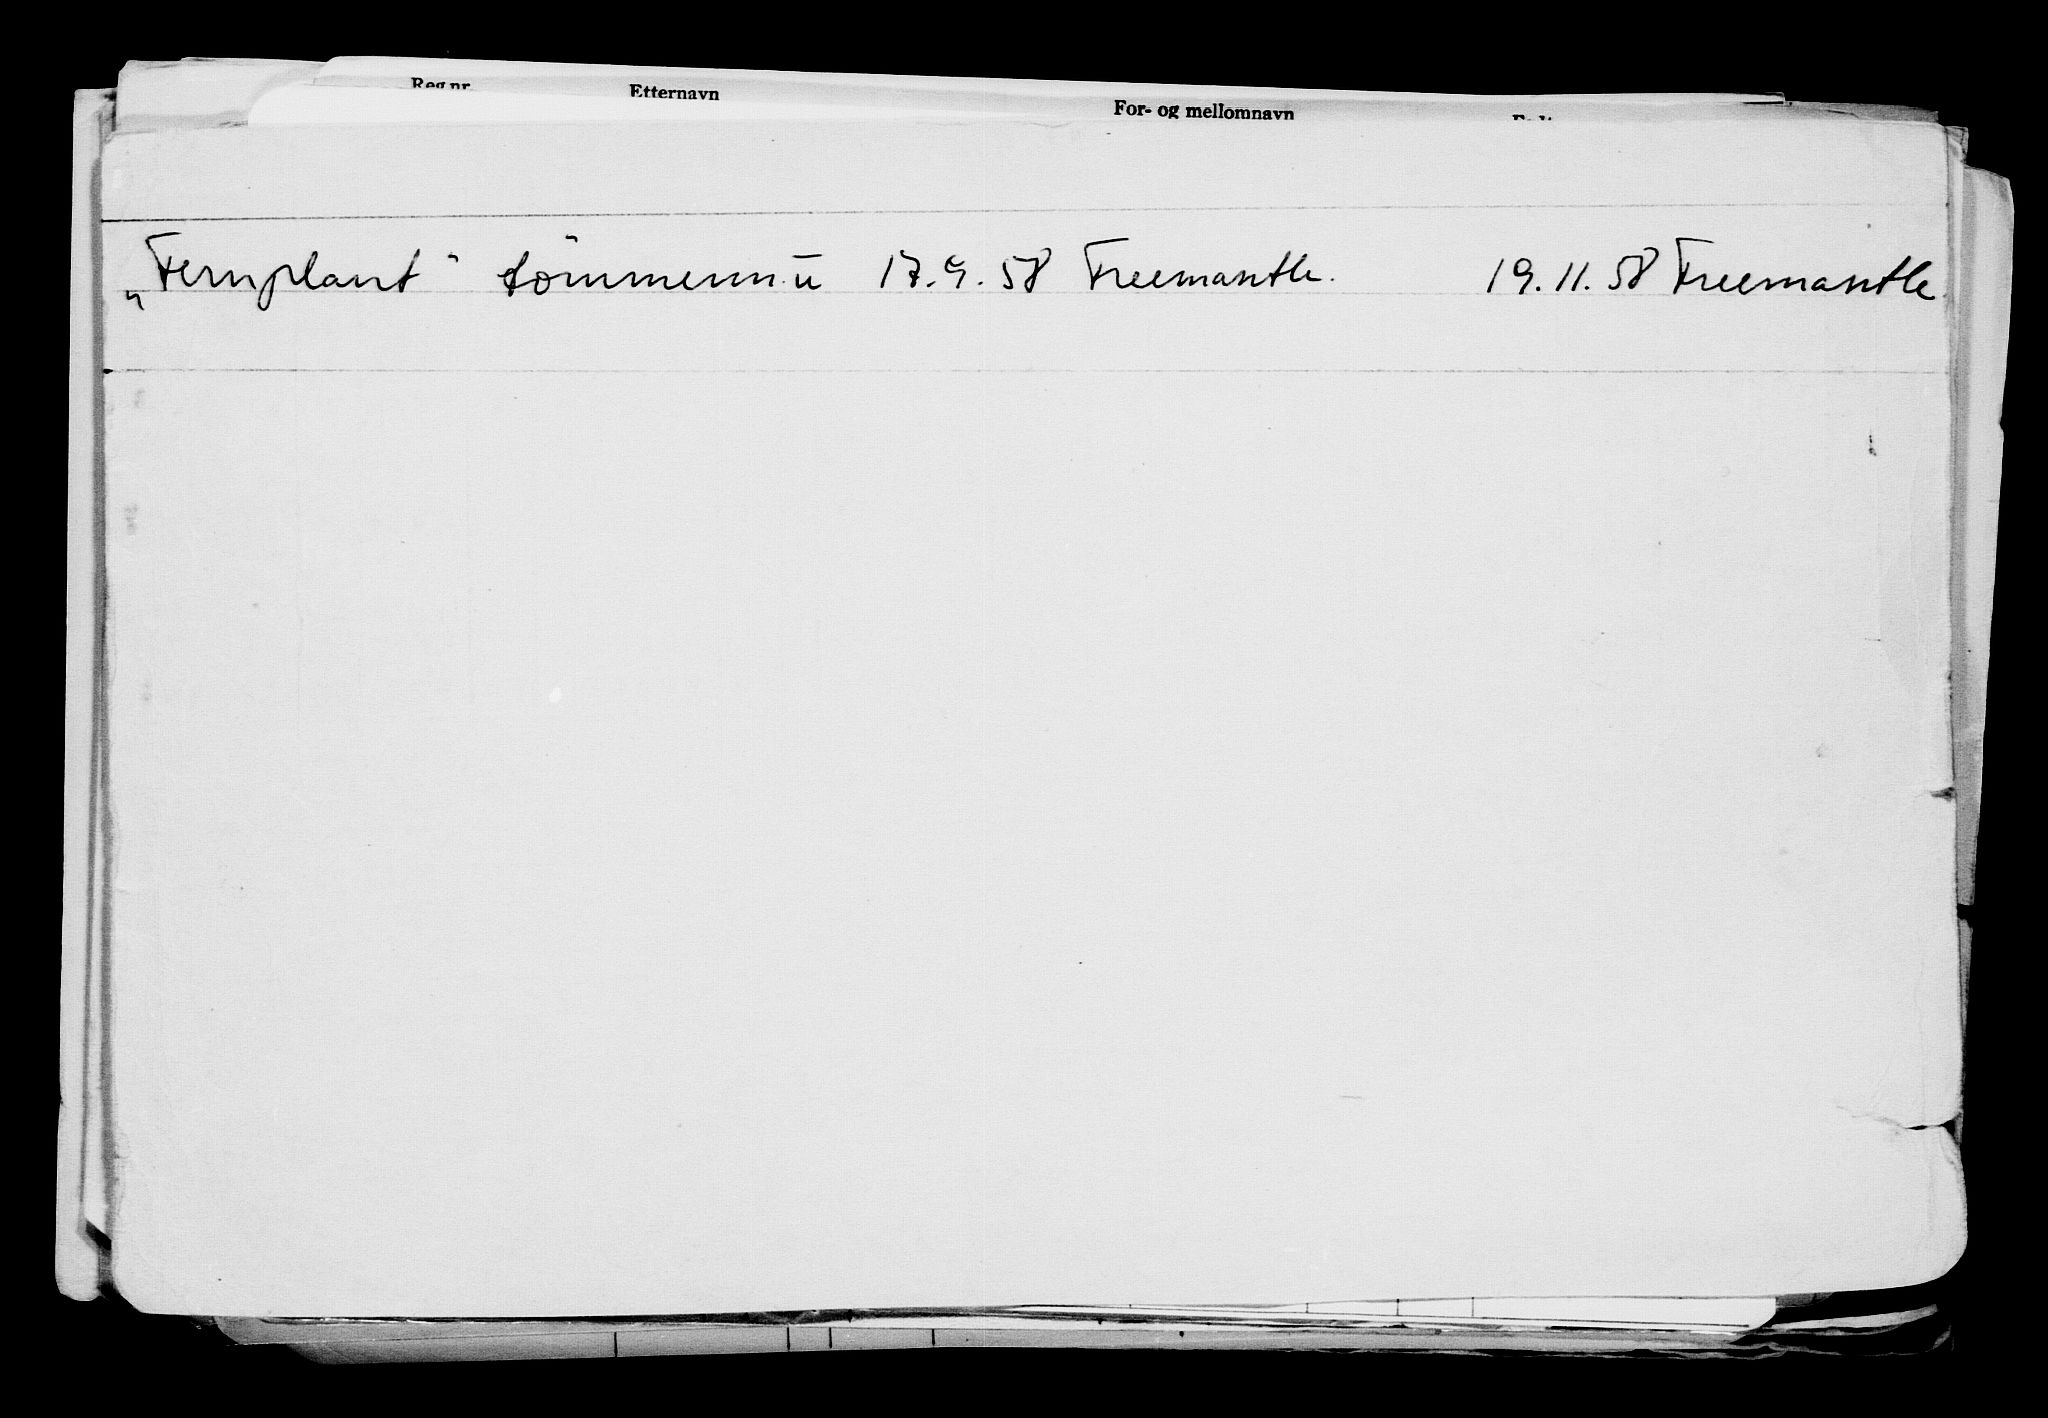 Reg.nr. Etternavn For- og mellomnavn
„Fernplant" tömmerm. 17.9.58 Freemantle. 19.11.58 Freemantle.